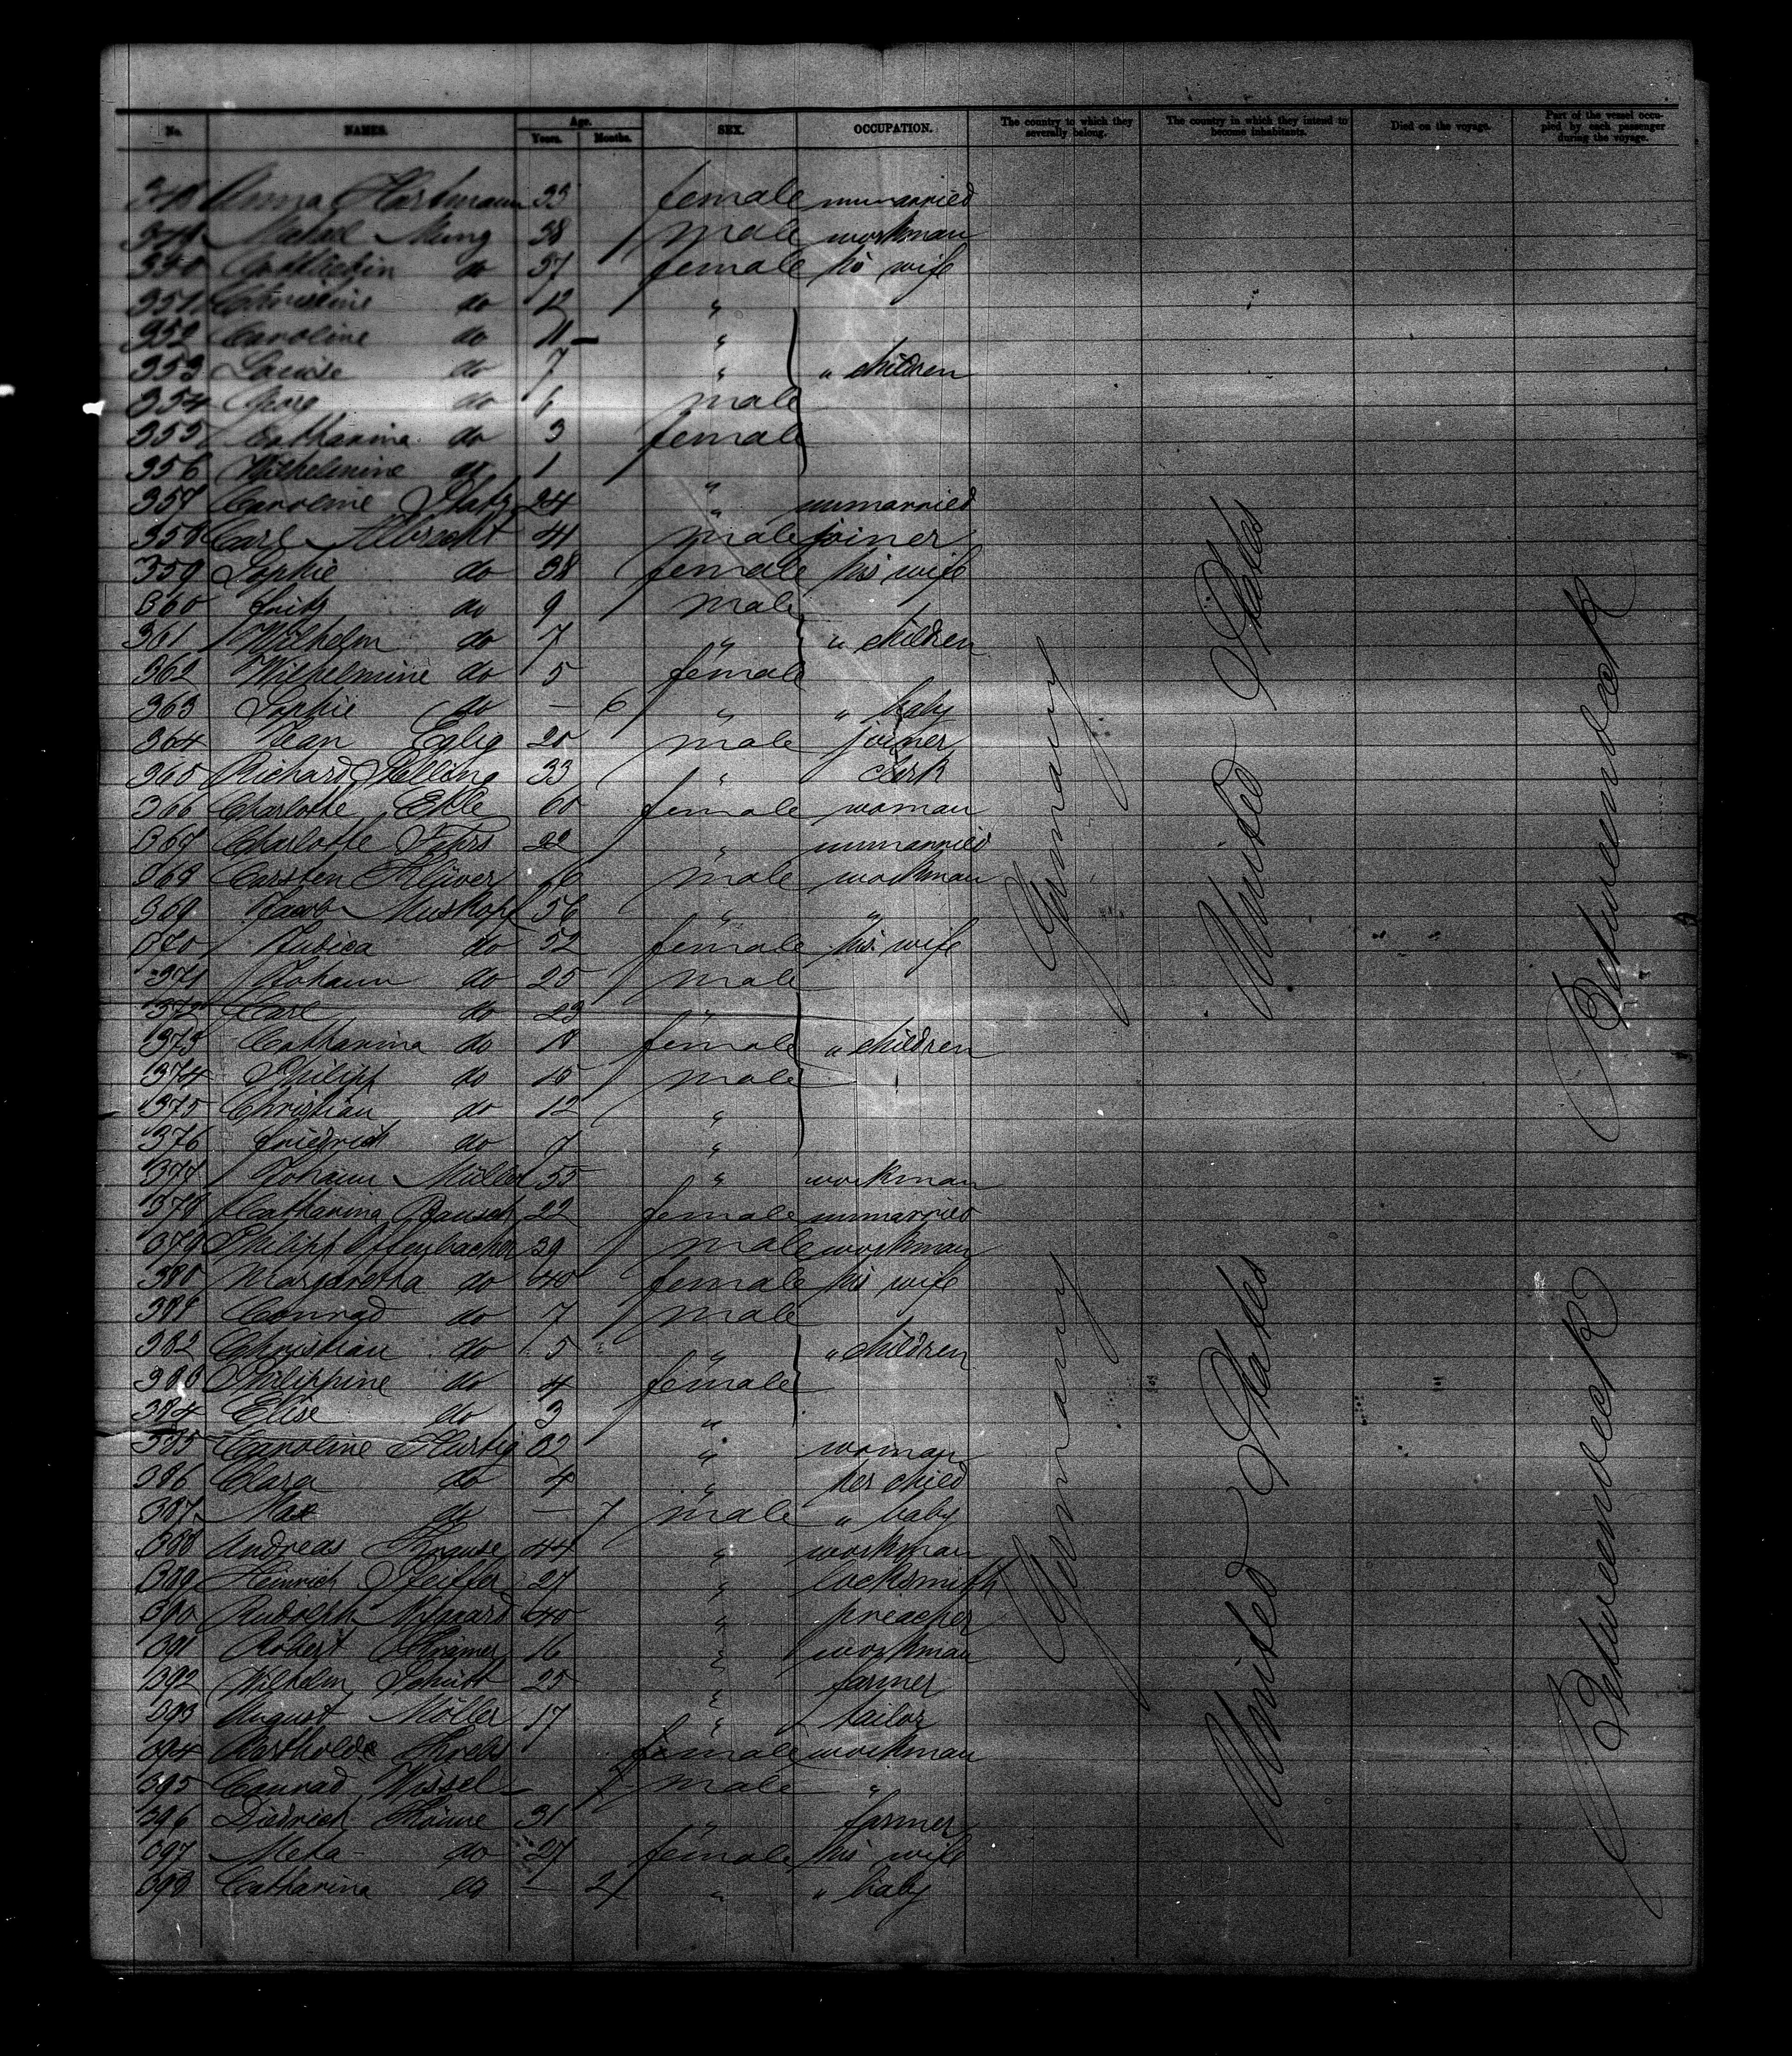 No. NAMES. Age. Years. Months. SEX. OCCUPATION. The country to which they severally belong. The country in which they intend to become inhabitants. Died on the voyage. Part of the vessel occupied by each passenger during the voyage.
348 Anna Hartmann 33 female unmarried
349 Michael 38 male workman
350 do 37 female his wife
351 Christine do 12 "
352 Caroline do 11 "
353 Louise do 7 " " children
354 do 6 male
355 Catharina do 3 female
356 Wilhelmine do 1 "
357 Caroline 24 " unmarried
358 Carl Albrecht 41 male joiner
359 Sophie do 38 female his wife
360 Fritz do 9 male
361 Wilhelm do 7 " " children
362 Wilhelmine do 5 female
363 Sophie do — 6 " " baby
364 Jean 20 male joiner
365 Richard 33 " clerk
366 Charlotte 60 female woman
367 Charlotte 22 " unmarried
368 Carsten Klüver 16 male workman
369 Jacob Muskopf 56 " "
370 do 52 female his wife
371 Johann do 25 male
372 Carl do 23 "
373 Catharina do 18 female " children
374 Philipp do 15 male
375 Christian do 12 "
376 Friedrich do 7 "
377 Johann Müller 55 " workman
378 Catharina Bausch 22 female unmarried
379 Philipp Offenbacher 39 male workman
380 Margaretha do 40 female his wife
381 Conrad do 7 male
382 Christian do 5 " " children
383 Philippine do 4 female
384 Elise do 3 "
385 Caroline Hartig 32 " woman
386 Clara do 4 " her child
387 Max do — 7 male " baby
388 Andreas Krause 44 " workman
389 Heinrich Pfeiffer 27 " locksmith
390 Rudolph 40 " preacher
391 Robert Krämer 16 " workman
392 Wilhelm Schütt 25 " farmer
393 August Möller 17 " tailor
394 Krebs female workman
395 Conrad Wissel male "
396 Diedrich 31 " farmer
397 Meta do 27 female his wife
398 Catharina do — 2 " " baby
Germany
United States
Betweendeck
Germany
United States
Betweendeck